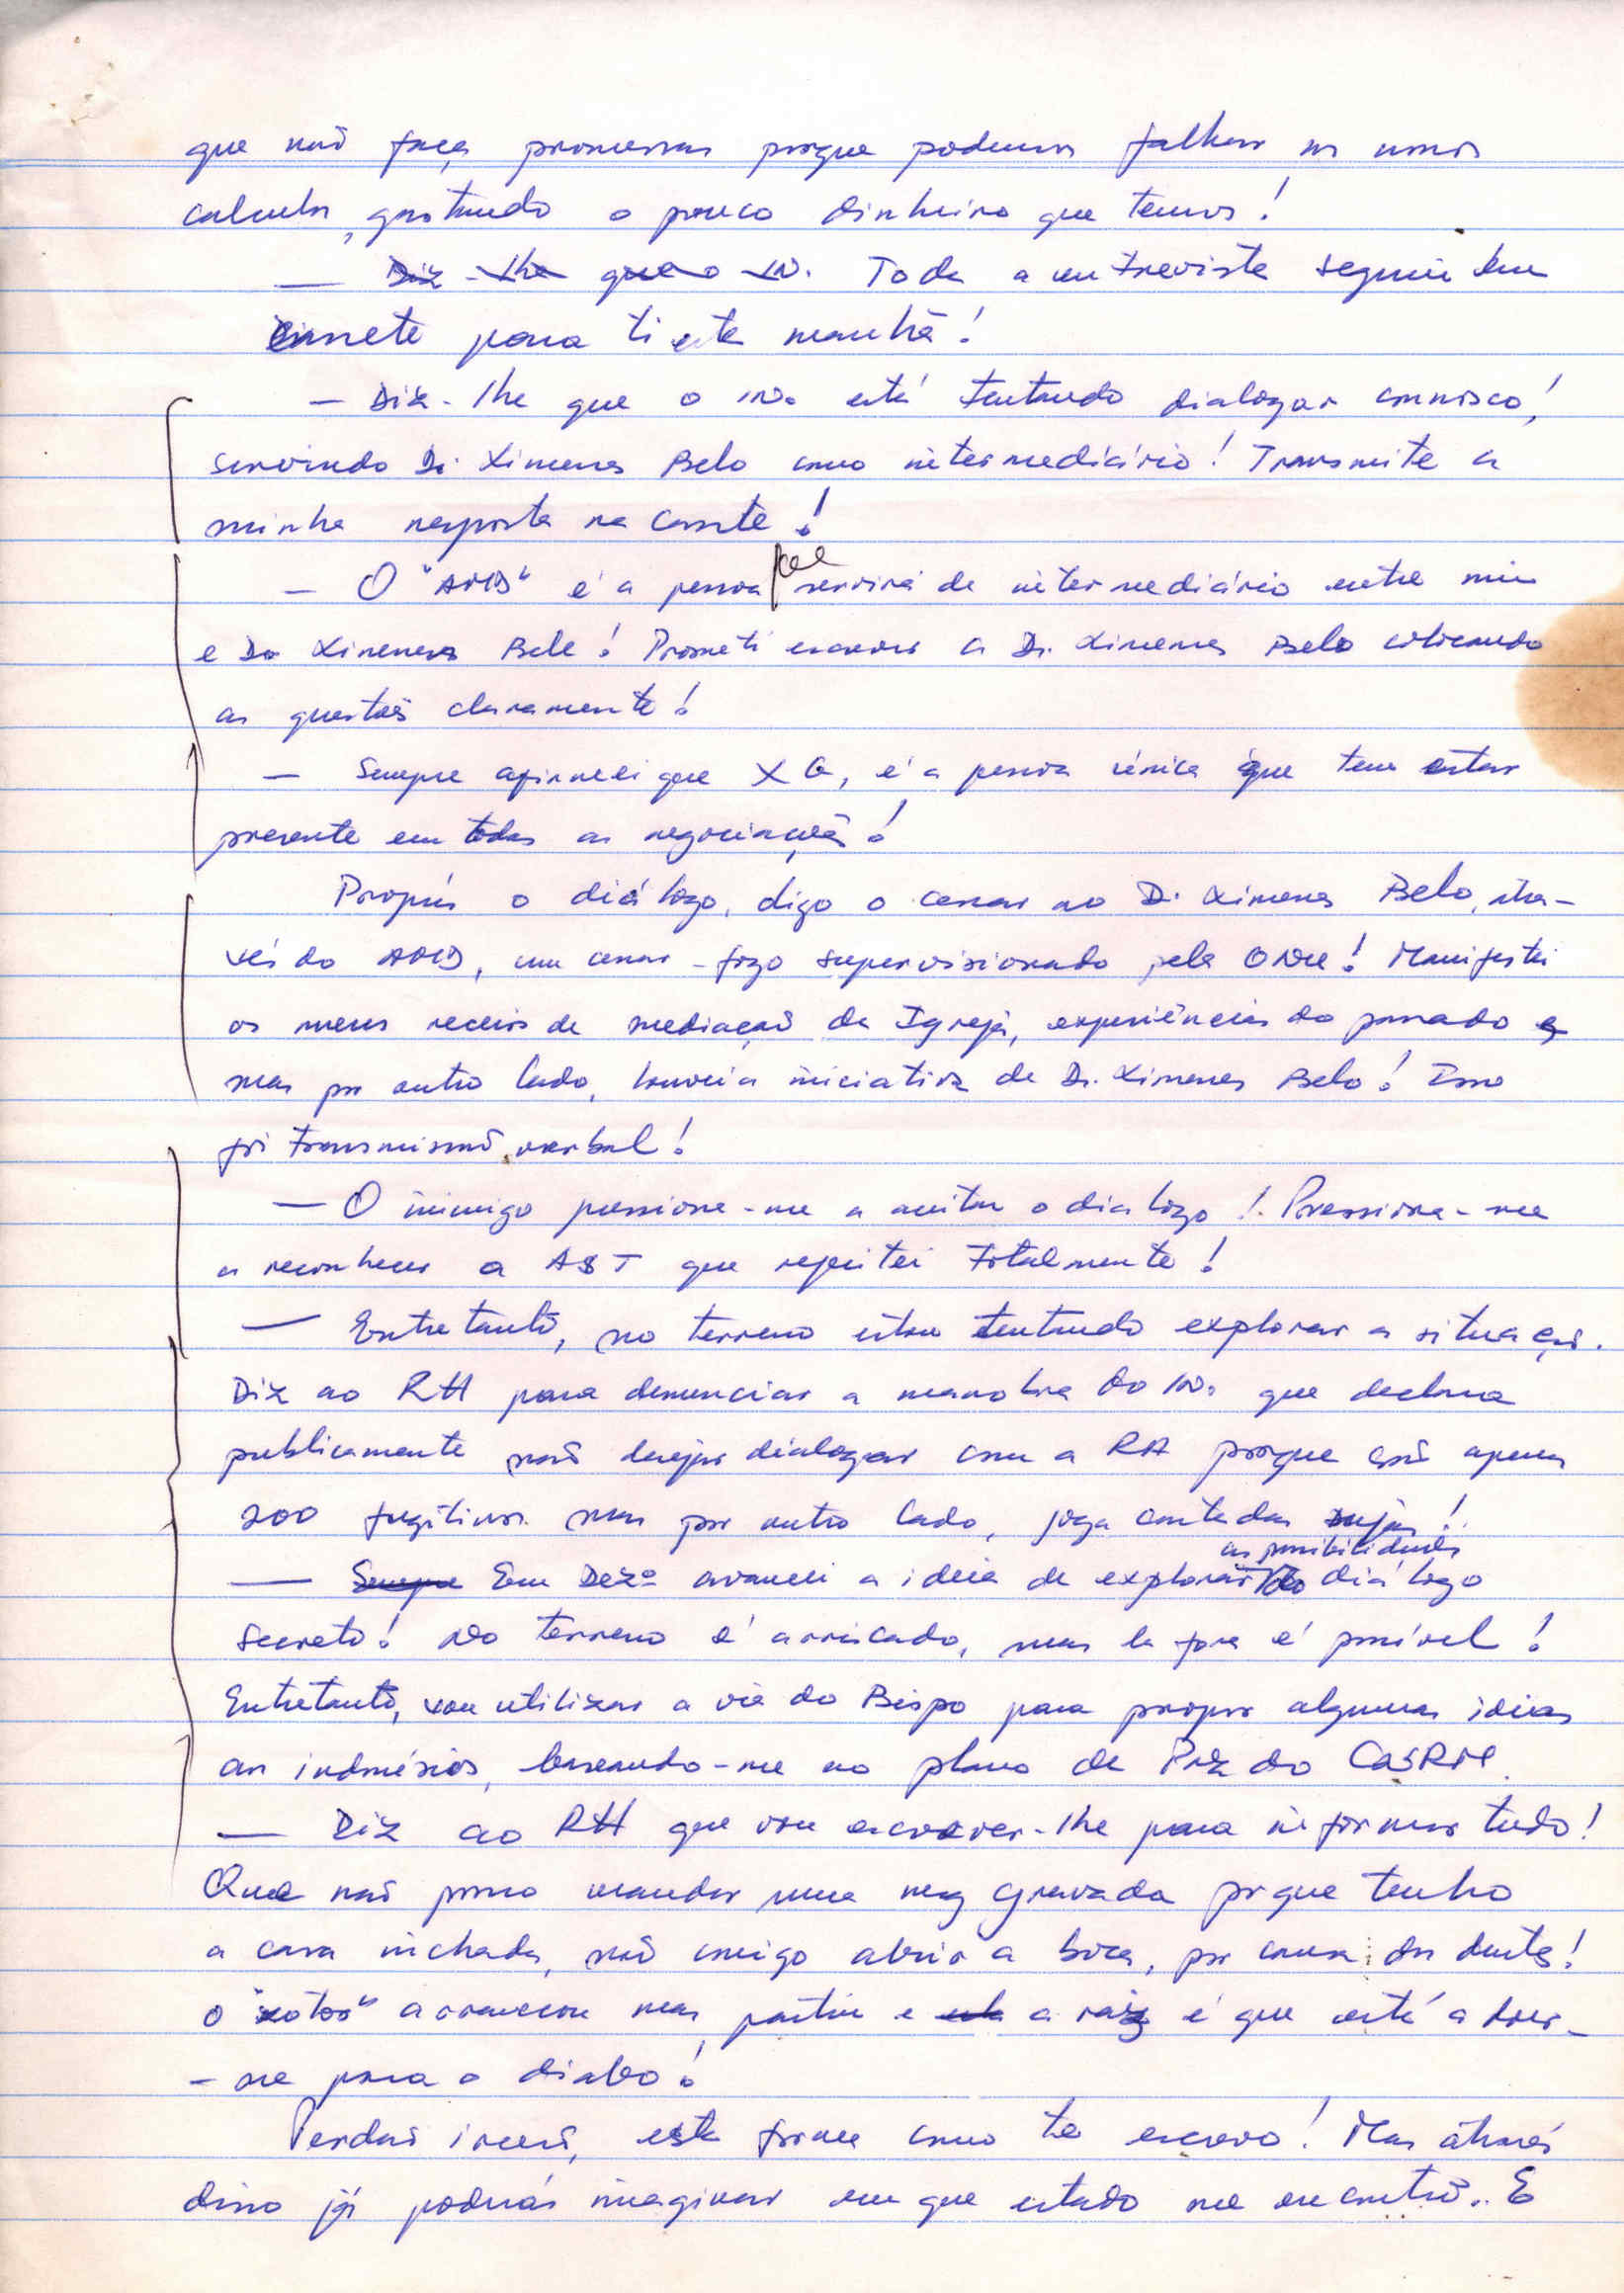 que não faça promessas porque podemos falhar nos nossos
calculos, gastando o pouco dinheiro que temos!
— Diz-lhe que o in. Toda a entrevista seguiu em
cassete para ti esta manhã!
— Diz-lhe que o in. está tentando dialogar connosco,!
servindo D. Ximenes Belo como intermediário! Transmite a
minha resposta na cassete!
— O "AMB" é a pessoa que servirá de intermediário entre mim
e Do Ximenes Belo! Prometi escrever a D. Ximenes Belo colocando
as questões claramente!
— Sempre afirmei que XG, é a pessoa única que tem estar
presente em todas as negociações!
Propús o diálogo, digo o cessar ao D. Ximenes Belo, atra-
vés do, um cessar-fogo supervisionado pela ONU! Manifestei
os meus receios de mediação da Igreja, experiências do passado e
mas por outro lado, louvei a iniciativa de D. Ximenes Belo! Isso
foi transmissão verbal!
— O inimigo pressiona-me a aceitar o dialogo! Pressiona-me
a reconhecer a AST que rejeitei totalmente!
— Entretanto, no terreno estou tentando explorar a situação.
Diz ao RH para denunciar a manobra do in. que declara
publicamente não desejar dialogar com a RA porque são apenas
200 fugitivos mas por outro lado, joga cartadas sujas!
— Sempre Em Dezº avancei a ideia de explorar as possibilidades do diálogo
secreto! No terreno é arriscado, mas la fora é possível!
Entretanto, vou utilizar a via do Bispo para propor algumas ideias
aos indonésios, baseando-me no plano de Paz do CRRM.
— Diz ao RH que vou escrever-lhe para informar tudo!
Que não posso mandar uma msg gravada porque tenho
a cara inchada, não consigo abrir a boca, por causa dos dentes!
O "" arrancou mas, partiu e a raiz é que está a doer-
-me para o diabo!
Perdoa irmã, esta forma como te escrevo! Mas através
disso já poderás imaginar em que estado me encontro.. E